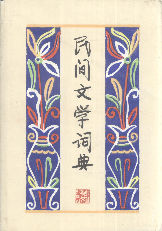 民间文学词典